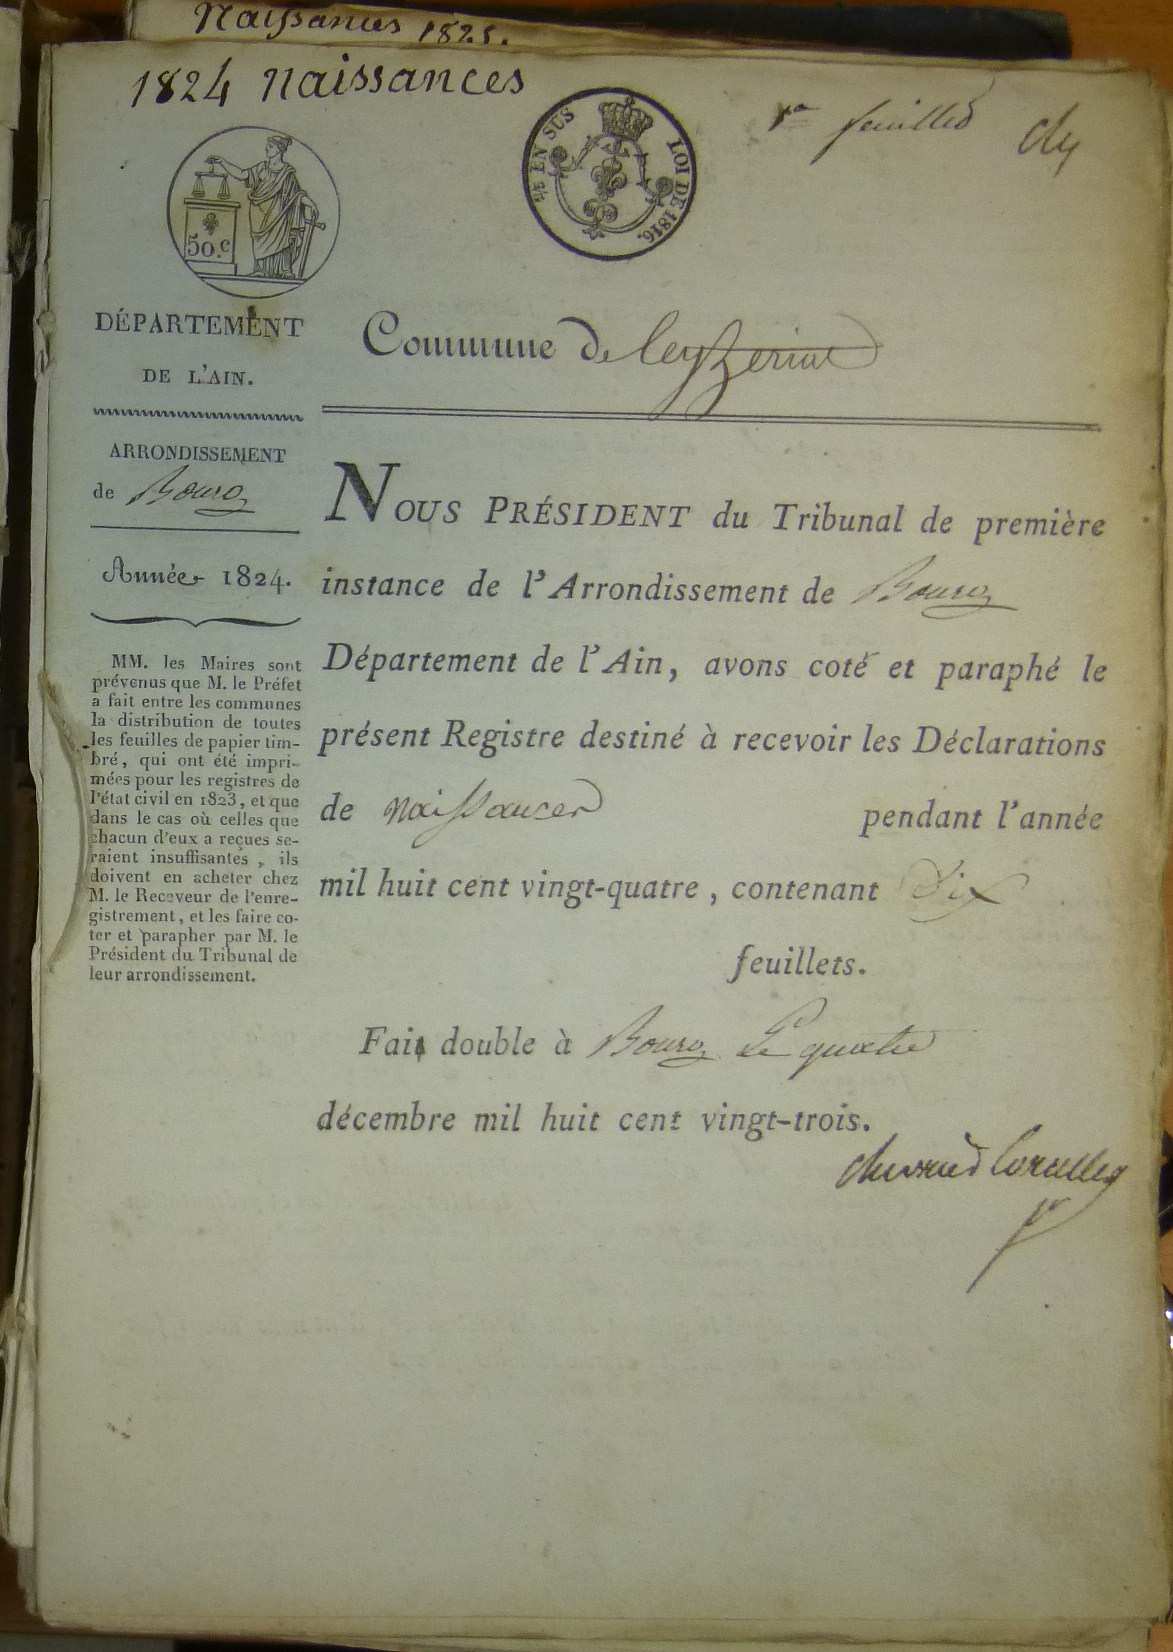 Naissances 1825.
1824 Naissances
1er feuillet
50.c
EN SUS
LOI DE 1816.
DÉPARTEMENT
DE L'AIN.
Commune de Ceyzeriat
ARRONDISSEMENT
de Bourg
Année 1824.
MM. les Maires sont
prévenus que M. le Préfet
a fait entre les communes
la distribution de toutes
les feuilles de papier tim-
bré, qui ont été impri-
mées pour les registres de
l'état civil en 1823, et que
dans le cas où celles que
chacun d'eux a reçues se-
raient insuffisantes, ils
doivent en acheter chez
M. le Receveur de l'enre-
gistrement, et les faire co-
ter et parapher par M. le
Président du Tribunal de
leur arrondissement.
NOUS PRÉSIDENT du Tribunal de première
instance de l'Arrondissement de Bourg
Département de l'Ain, avons coté et paraphé le
présent Registre destiné à recevoir les Déclarations
de naissances pendant l'année
mil huit cent vingt-quatre, contenant dix
feuillets.
Fait double à Bourg Le quatre
décembre mil huit cent vingt-trois.